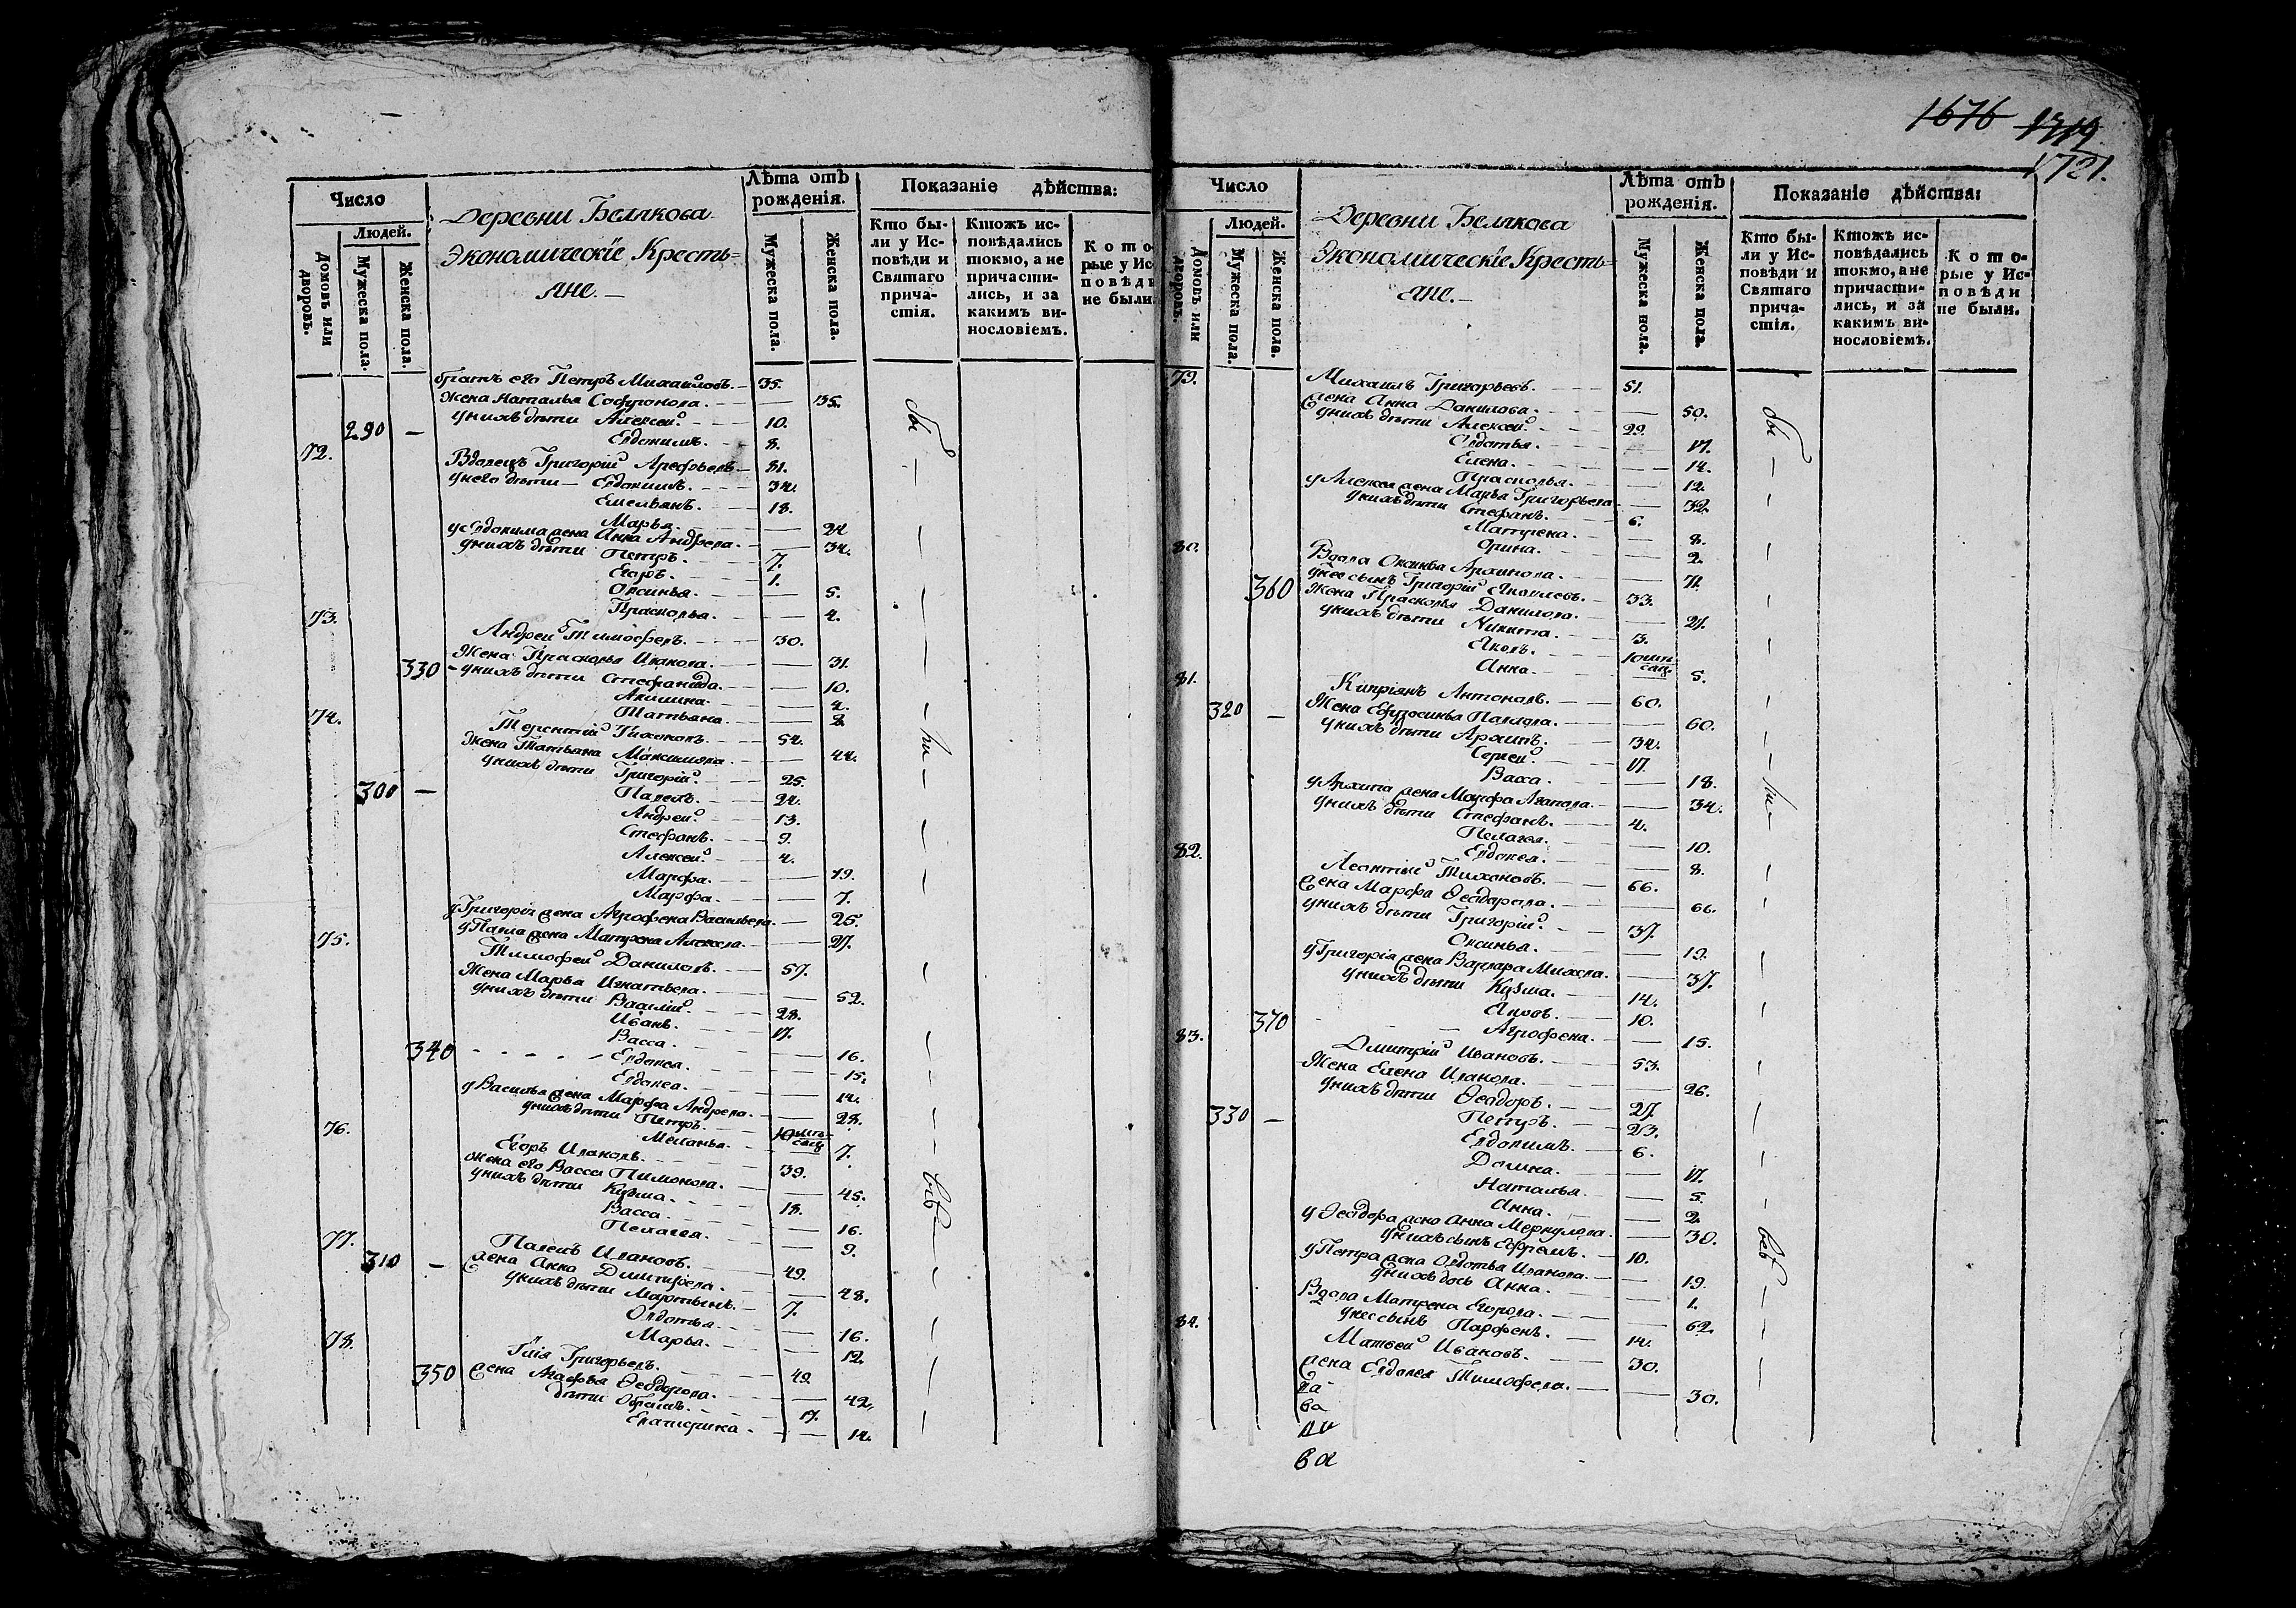 1676 1719
1721.
Число
Людей.
Домовъ или дворовъ.
Мужеска пола.
Женска пола.
Деревни Белякова
Экономическiе Кресть=
яне.—
Лѣта отъ рожденiя.
Мужеска пола.
Женска пола.
Показанiе дѣйства:
Кто бы-
ли у Ис-
повѣди и
Святаго
прича-
стiя.
Ктожъ ис-
повѣдались
токмо, а не
причасти-
лись, и за
какимъ ви-
нословiемъ.
Кото-
рые у Ис-
повѣди
не были.
братъ его Петръ Михаиловъ. — 35.
жена Наталья Софронова. — 35.
у нихъ дѣти Алексей. — 10.
290 — Евдокимъ. — 8.
72. Вдовецъ Григорiй Арефьевъ — 81.
у него дѣти — Евдокимъ. — 34.
Емельянъ. — 18.
Марья. — 24
у Евдокима жена Анна Андреева. — 34.
у нихъ дѣти Петръ. — 7.
Егоръ. — 1.
Оксинья. — 5.
Прасковья. — 4.
73. Андрей Тимофеевъ. — 30.
Жена Прасковья Иванова. — 31.
330 — у нихъ дѣти Стефанида. — 10.
Акилина. — 4.
Татьяна. — 2
74. Терентiй Тихоновъ. — 54.
Жена Татьяна Максимова. — 44.
у нихъ дѣти Григорiй. — 25.
300 — Павелъ. — 24.
Андрей. — 13.
Стефанъ. — 9.
Алексей. — 4.
Марфа. — 19.
Марфа. — 7.
у Григорiя жена Агрофена Васильева. — 25.
у Павла жена Матрена Алексеева. — 27.
75. Тимофей Даниловъ. — 57.
Жена Марья Игнатьева. — 52.
у нихъ дѣти Василiй. — 28.
Иванъ. — 17.
Васса. — 16.
340 — Евдокея. — 15.
Евдокея. — 14.
у Василья жена Марфа Андреева. — 28.
у нихъ дѣти Петръ. — 10 месяц
Меланья. — 7.
76. Егоръ Ивановъ. — 39.
жена его Васса Пимонова. — 45.
у нихъ дѣти Кузма. — 18.
Васса. — 16.
Пелагея. — 9.
77. Павелъ Ивановъ. — 49.
310 — жена Анна Дмитреева. — 48.
у нихъ дѣти Мартынъ. — 7.
Овдотья. — 16.
Марья. — 12.
78. Илiя Григорьевъ. — 49.
350 жена Агафья Ѳеодорова. — 42.
дѣти Обрамъ. — 17.
Екатерина. — 14.
бы
ли
всѣ
Число
Людей.
Домовъ или дворовъ.
Мужеска пола.
Женска пола.
Деревни Белякова
Экономическiе Кресть=
яне.—
Лѣта отъ рожденiя.
Мужеска пола.
Женска пола.
Показанiе дѣйства:
Кто бы-
ли у Ис-
повѣди и
Святаго
прича-
стiя.
Ктожъ ис-
повѣдались
токмо, а не
причасти-
лись, и за
какимъ ви-
нословiемъ.
Кото-
рые у Ис-
повѣди
не были.
79. Михаилъ Григорьевъ. — 51.
жена Анна Данилова. — 50.
у нихъ дѣти Алексей. — 29.
Овдотья. — 17.
Елена. — 14.
Прасковья. — 12.
у Алексея жена Марья Григорьева — 32.
у нихъ дѣти Стефанъ. — 6.
Матрена. — 8.
Орина. — 2.
80. Вдова Оксинья Архипова. — 71.
у нее сынъ Григорiй Яковлевъ. — 33.
360 Жена Прасковья Данилова. — 27.
у нихъ дѣти Никита. — 3.
Яковъ. — 10 месяц
Анна. — 5.
81. Кипрiянъ Антоновъ. — 60.
320 — Жена Ефросинья Павлова. — 60.
у нихъ дѣти Архипъ. — 34.
Сергей. — 17.
Васса. — 18.
у Архипа жена Марфа Агапова. — 34.
у нихъ дѣти Стефанъ. — 4.
Пелагея. — 10.
Евдокея. — 8.
82. Леонтiй Тихоновъ. — 66.
жена Марфа Ѳеодорова. — 66.
у нихъ дѣти Григорiй. — 37.
Оксинья. — 19.
у Григорiя жена Варвара Михеева. — 37.
у нихъ дѣти Кузма. — 14.
Яковъ. — 10.
370 Агрофена. — 15.
83. Дмитрiй Ивановъ. — 53.
Жена Елена Иванова. — 26.
у нихъ дѣти Ѳеодоръ. — 27.
330 — Петръ. — 23.
Евдокимъ. — 6.
Домна. — 17.
Наталья. — 5.
Анна. — 2.
у Ѳеодора жена Анна Меркулова. — 30.
у нихъ сынъ Ефремъ. — 10.
у Петра жена Овдотья Иванова. — 19.
у нихъ дочь Анна. — 1.
Вдова Матрена Егорова. — 62.
у нее сынъ Парфенъ. — 14.
84. Матвей Ивановъ. — 30.
жена Евдокея Тимофеева. — 30.
бы
ли
всѣ
ва